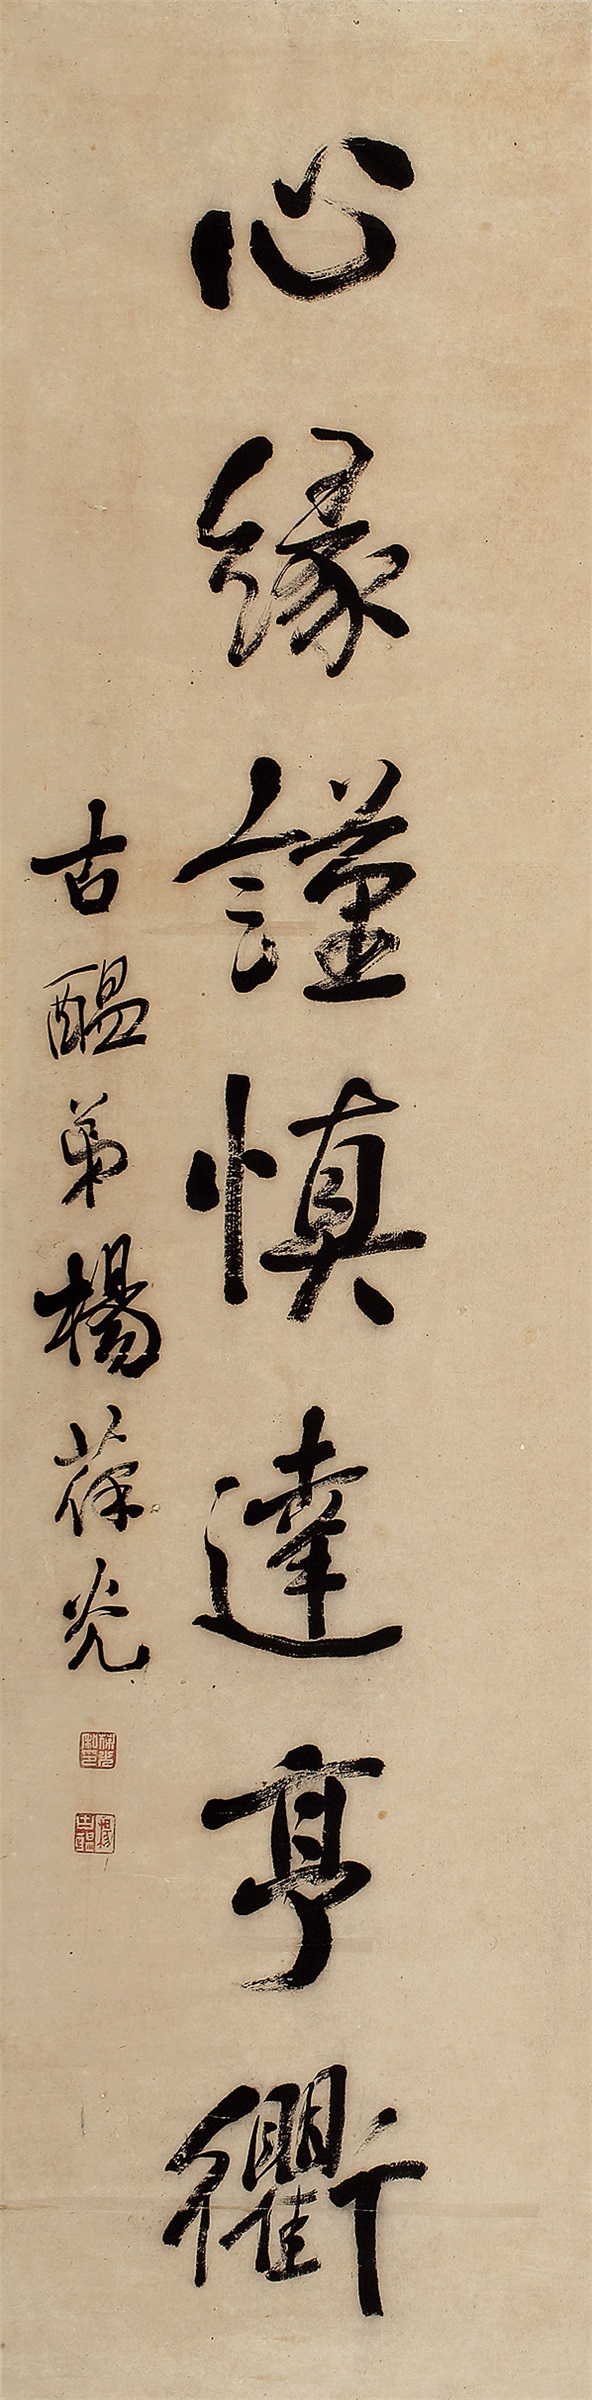 心緣謹慎達亨衢
古醖弟楊葆光